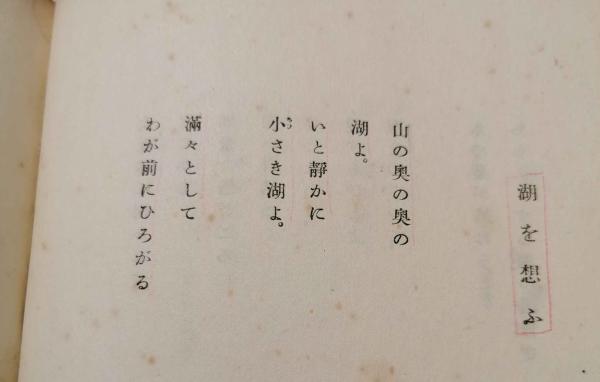 湖を想ふ
山の奥の奥の
湖よ。
いと靜かに
小さき湖よ。
滿々として
わが前にひろがる